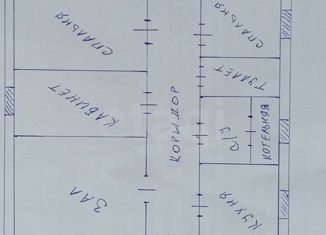 СПАЛЬНЯ
КАБИНЕТ
ЗАЛ
КОРИДОР
СПАЛЬНЯ
ТУАЛЕТ
С/У
КОТЕЛЬНАЯ
КУХНЯ